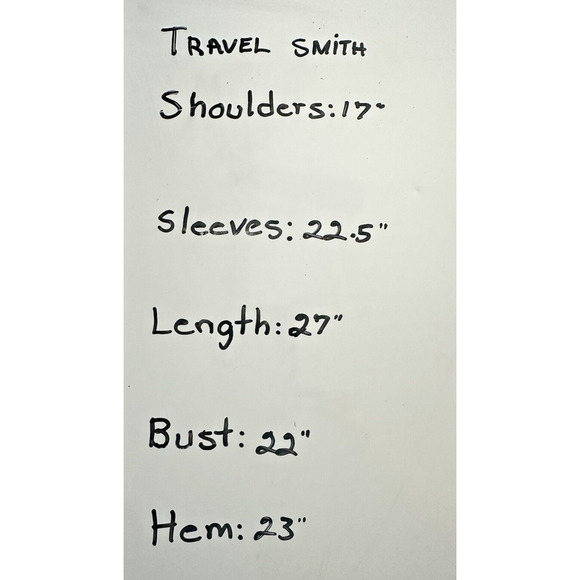 TRAVEL SMITH
Shoulders: 17"
Sleeves: 22.5"
Length: 27"
Bust: 22"
Hem: 23"